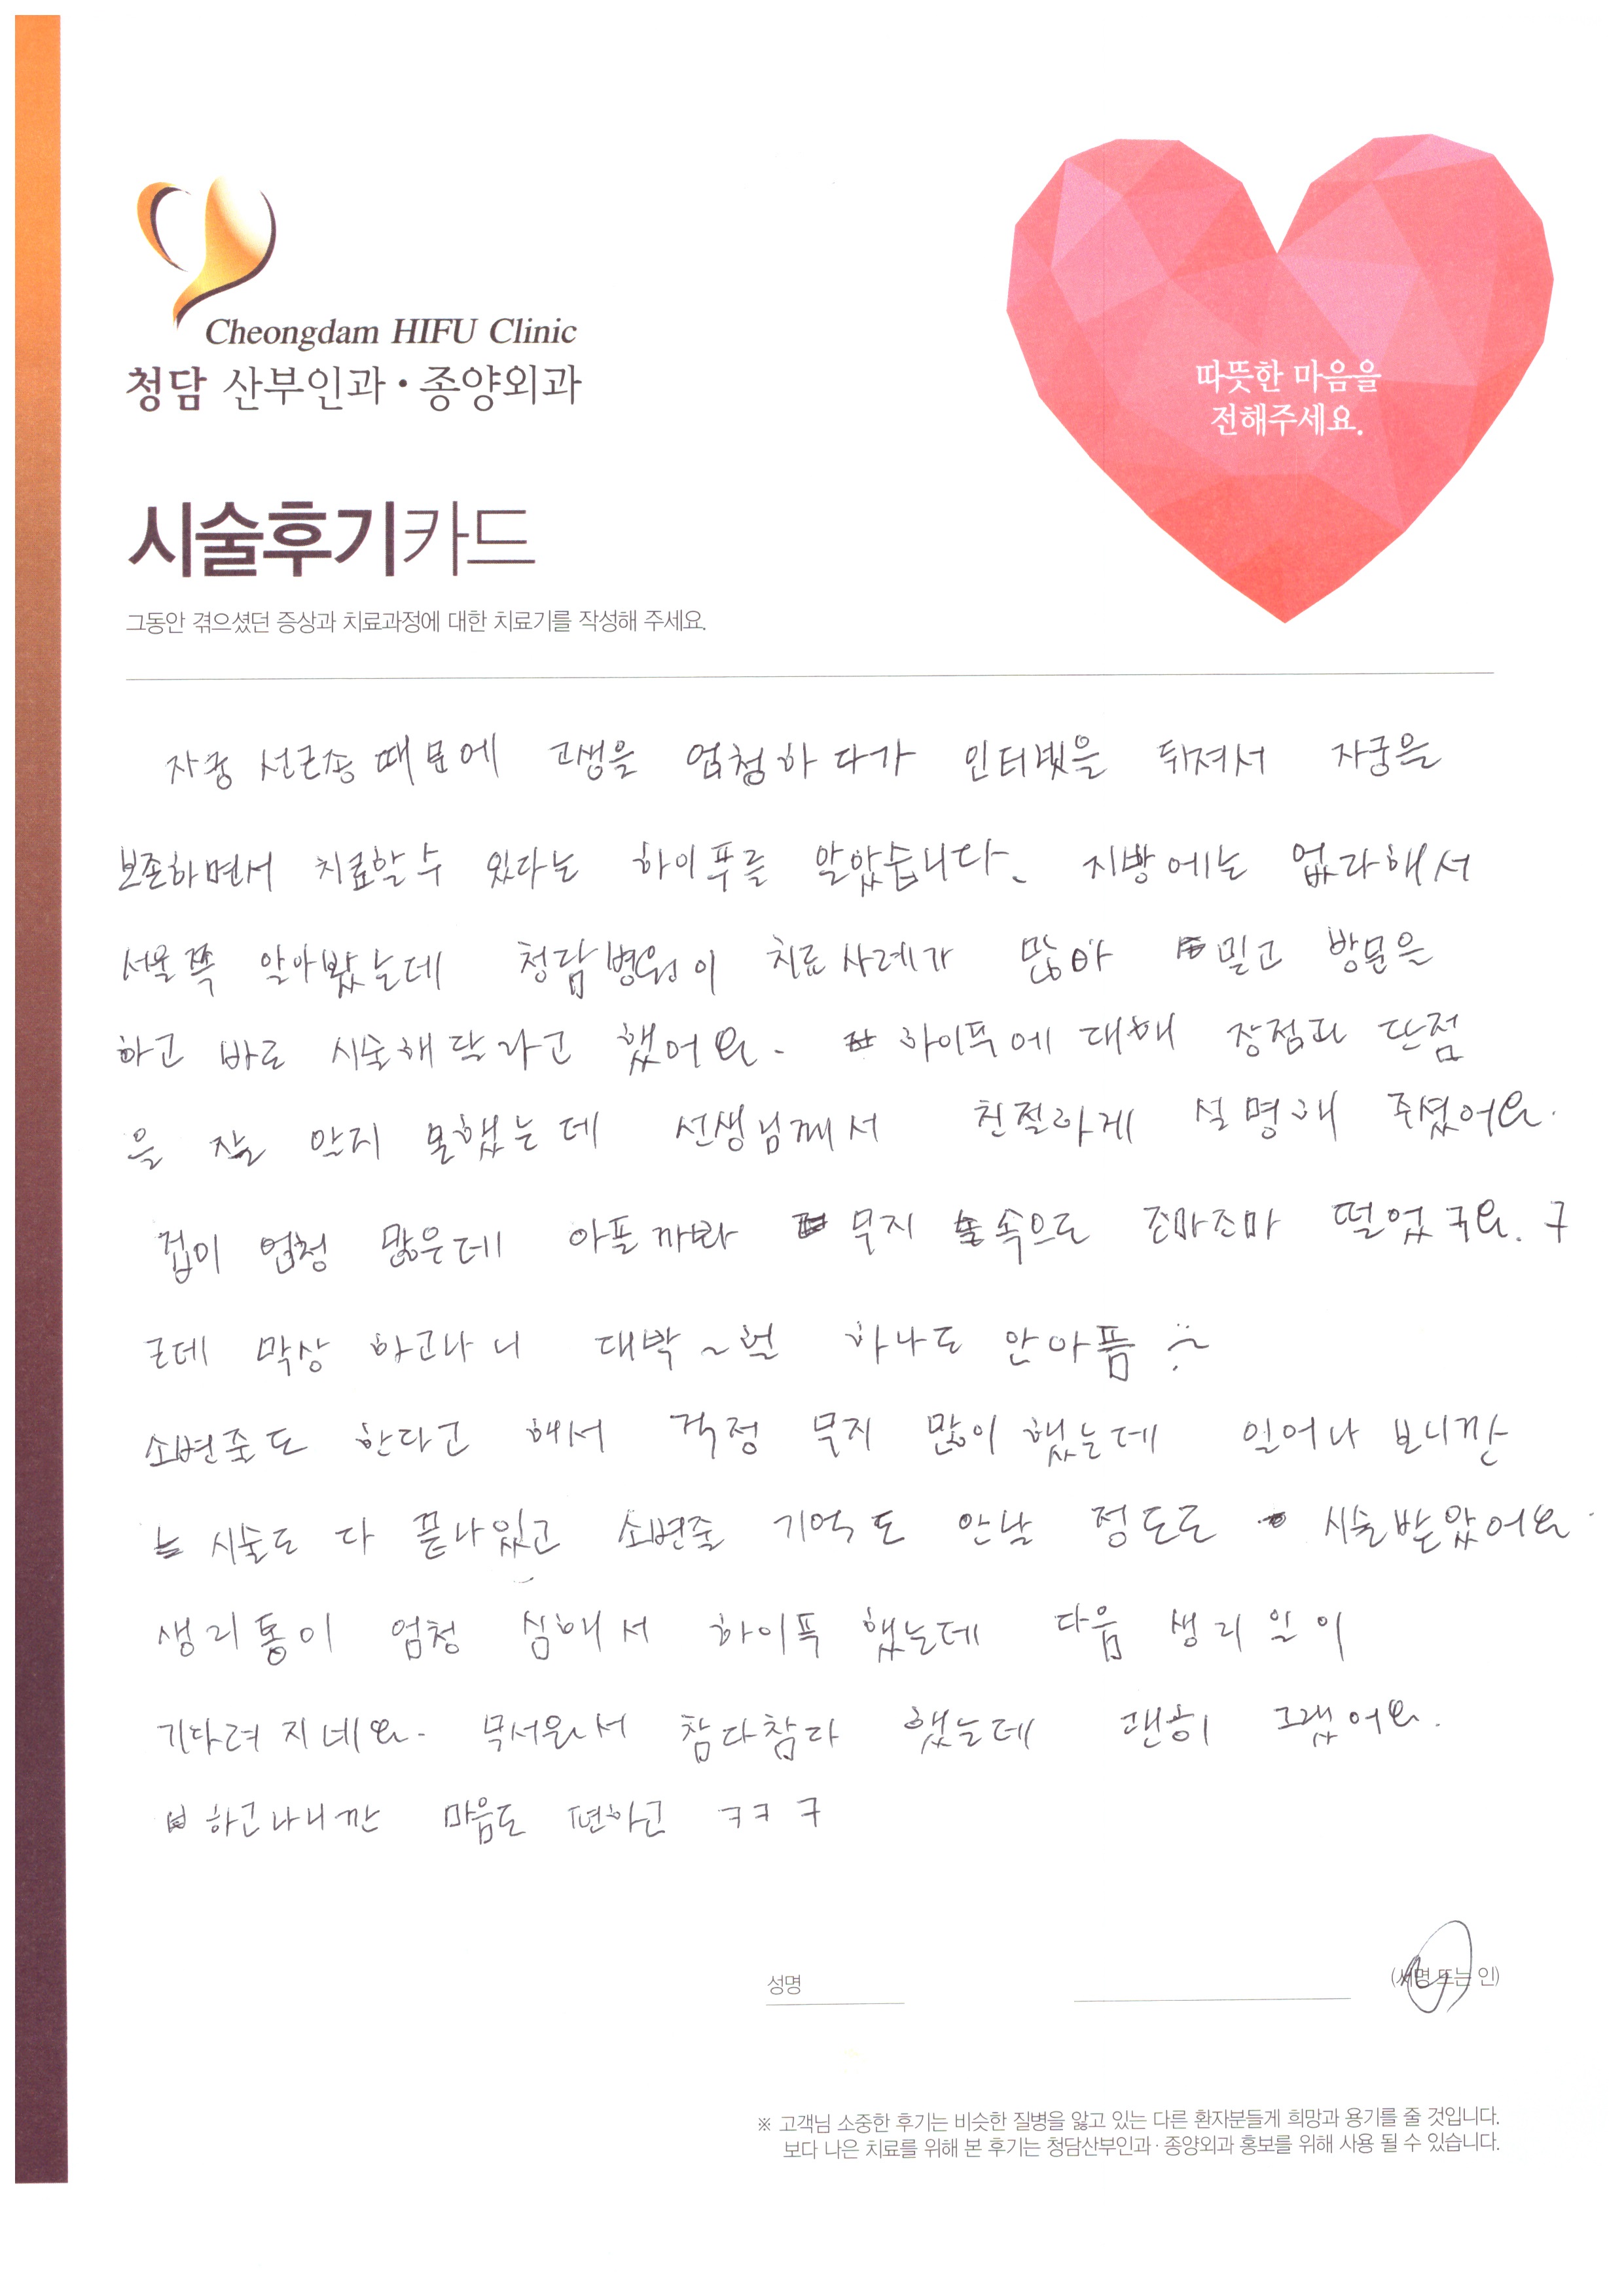 Cheongdam HIFU Clinic
청담 산부인과 · 종양외과
따뜻한 마음을
전해주세요.
시술후기카드
그동안 겪으셨던 증상과 치료과정에 대한 치료기를 작성해 주세요.
자궁 선근종 때문에 고생을 엄청하다가 인터넷을 뒤져서 자궁을
보존하면서 치료할수 있다는 하이푸를 알았습니다. 지방에는 없다해서
서울쪽 알아봤는데 청담병원이 치료사례가 많아 믿고 방문을
하고 바로 시술해달라고 했어요. 하이푸에 대해 장점과 단점
을 잘 알지 못했는데 선생님께서 친절하게 설명해 주셨어요.
겁이 엄청 많은데 아플까봐 무지 속으로 조마조마 떨었구요. ㄱ
근데 막상 하고나니 대박~헐 하나도 안아픔
소변줄도 한다고 해서 걱정 무지 많이 했는데 일어나 보니깐
시술도 다 끝나있고 소변줄 기억도 안날 정도로 시술받았어요.
생리통이 엄청 심해서 하이푸 했는데 다음 생리일이
기다려 지네요. 무서워서 참다참다 했는데 괜히 그랬어요.
하고나니깐 마음도 편하고 ㅋㅋㅋ
성명
(서명 또는 인)
※ 고객님 소중한 후기는 비슷한 질병을 앓고 있는 다른 환자분들게 희망과 용기를 줄 것입니다.
보다 나은 치료를 위해 본 후기는 청담산부인과 · 종양외과 홍보를 위해 사용 될 수 있습니다.